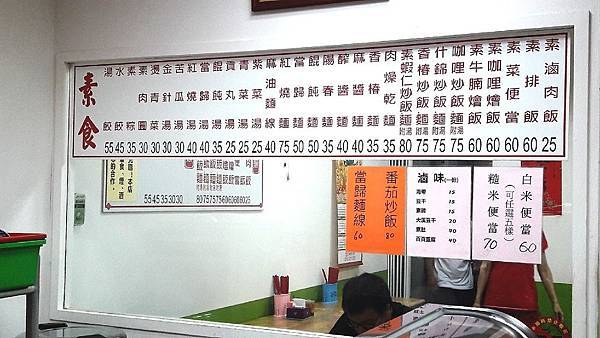 素食
素滷肉飯 25
素排飯 60
素菜便當 60
素咖哩燴飯 60
素牛腩燴飯 60
咖哩炒飯麵 附湯 75
什錦炒飯麵 附湯 75
香椿炒飯麵 附湯 75
素蝦仁炒飯麵 附湯 80
肉燥乾麵 35
香椿麵 35
麻醬麵 40
酢醬麵 40
陽春麵 35
餛飩麵 50
當歸麵 50
紅燒麵 75
麻油麵線 40
紫菜湯 25
青菜湯 25
貢丸湯 25
餛飩湯 35
當歸湯 35
紅燒湯 40
苦瓜湯 30
金針湯 30
燙青菜 30
素肉圓 30
素粽 35
水餃 45
湯餃 55
白米便當 60
(可任選五樣)
糙米便當 70
滷味(一份)
海帶 15
豆干 15
素雞 15
大溪豆干 20
素肚 40
百頁豆腐 40
番茄炒飯 80
當歸麵線 60